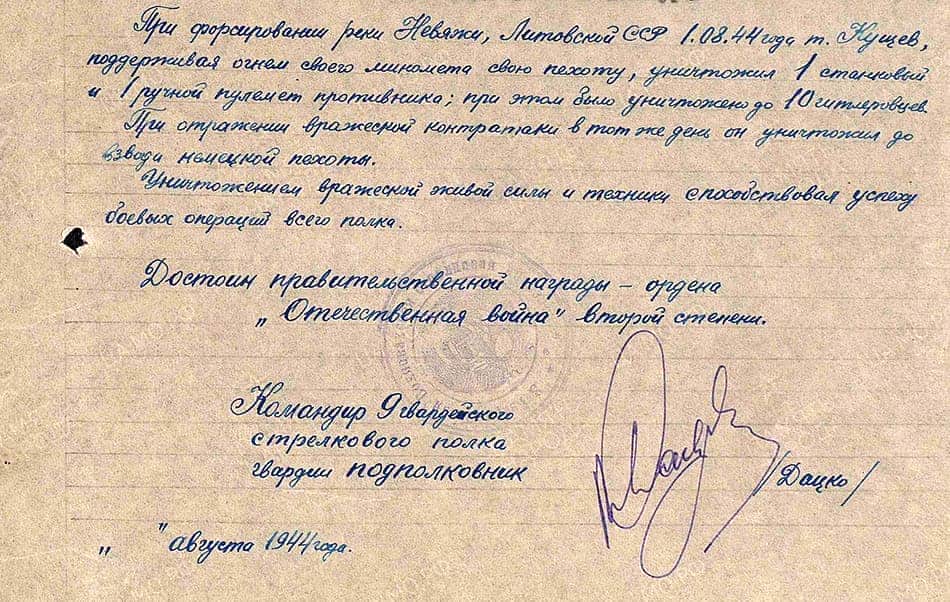 При форсировании реки Невяжи, Литовской ССР 1.08.44 года т. Кущев,
поддерживая огнем своего миномета свою пехоту, уничтожил 1 станковый
и 1 ручной пулемет противника; при этом было уничтожено до 10 гитлеровцев.
При отражении вражеской контратаки в тот же день он уничтожил до
взвода немецкой пехоты.
Уничтожением вражеской живой силы и техники способствовал успеху
боевых операций всего полка.
Достоин правительственной награды – ордена
„Отечественная война" второй степени.
Командир 9 гвардейского
стрелкового полка
гвардии подполковник
/Дацко/
„ " августа 1944 года.